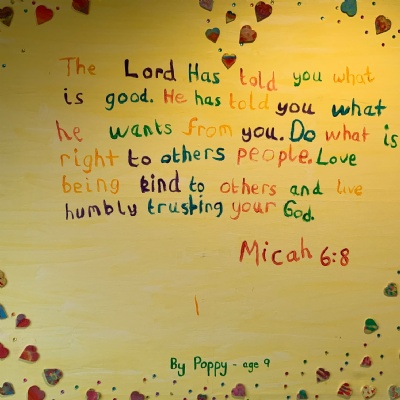 The Lord Has told you what
is good. He has told you what
he wants from you. Do what is
right to others people. Love
being kind to others and live
humbly trusting your God.
Micah 6:8
By Poppy - age 9